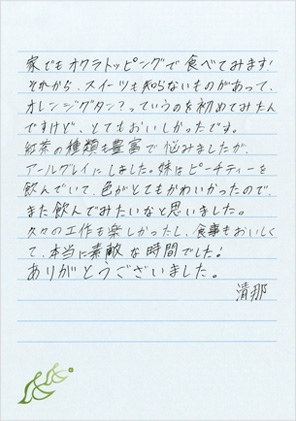 家でもオクラトッピングで食べてみます!
それから、スイーツも知らないものがあって、
オレンジグタン?っていうのを初めてみたん
ですけど、とてもおいしかったです。
紅茶の種類も豊富で悩みましたが、
アールグレイにしました。妹はピーチティーを
飲んでいて、色がとてもかわいかったので、
また飲んでみたいなと思いました。
久々の工作も楽しかったし、食事もおいしく
て、本当に素敵な時間でした!
ありがとうございました。
清那